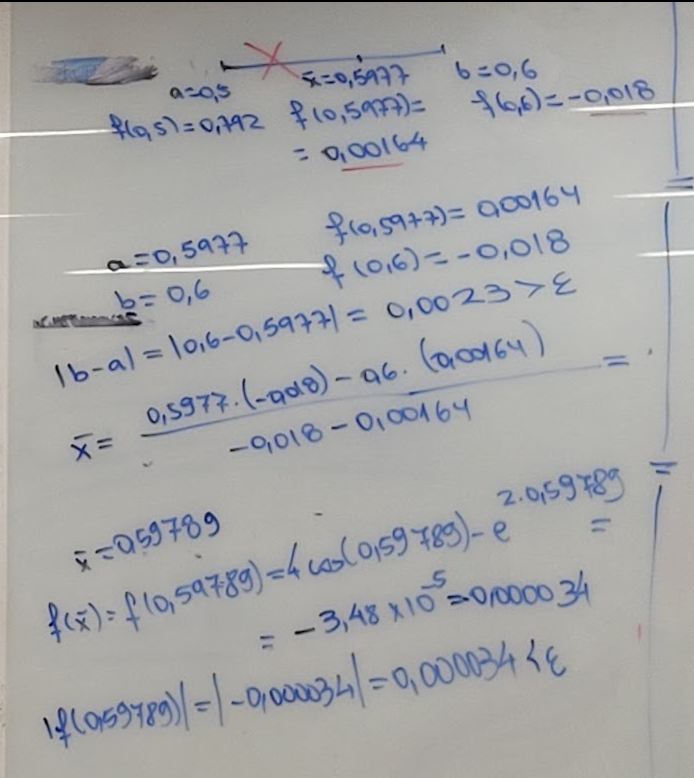 a=0,5 x̄=0,5977 b=0,6
f(0,5)=0,792 f(0,5977)= f(0,6)=-0,018
= 0,00164
a=0,5977 f(0,5977)=0,00164
b=0,6 f(0,6)=-0,018
|b-a|=|0,6-0,5977|=0,0023>ε
x̄= 0,5977.(-0,018)-0,6.(0,00164) =
-0,018-0,00164
x̄=0,59789
f(x̄)=f(0,59789)=4cos(0,59789)-e^2.0,59789 =
= -3,48x10^-5=0,000034
|f(0,59789)|=|-0,000034|=0,000034<ε